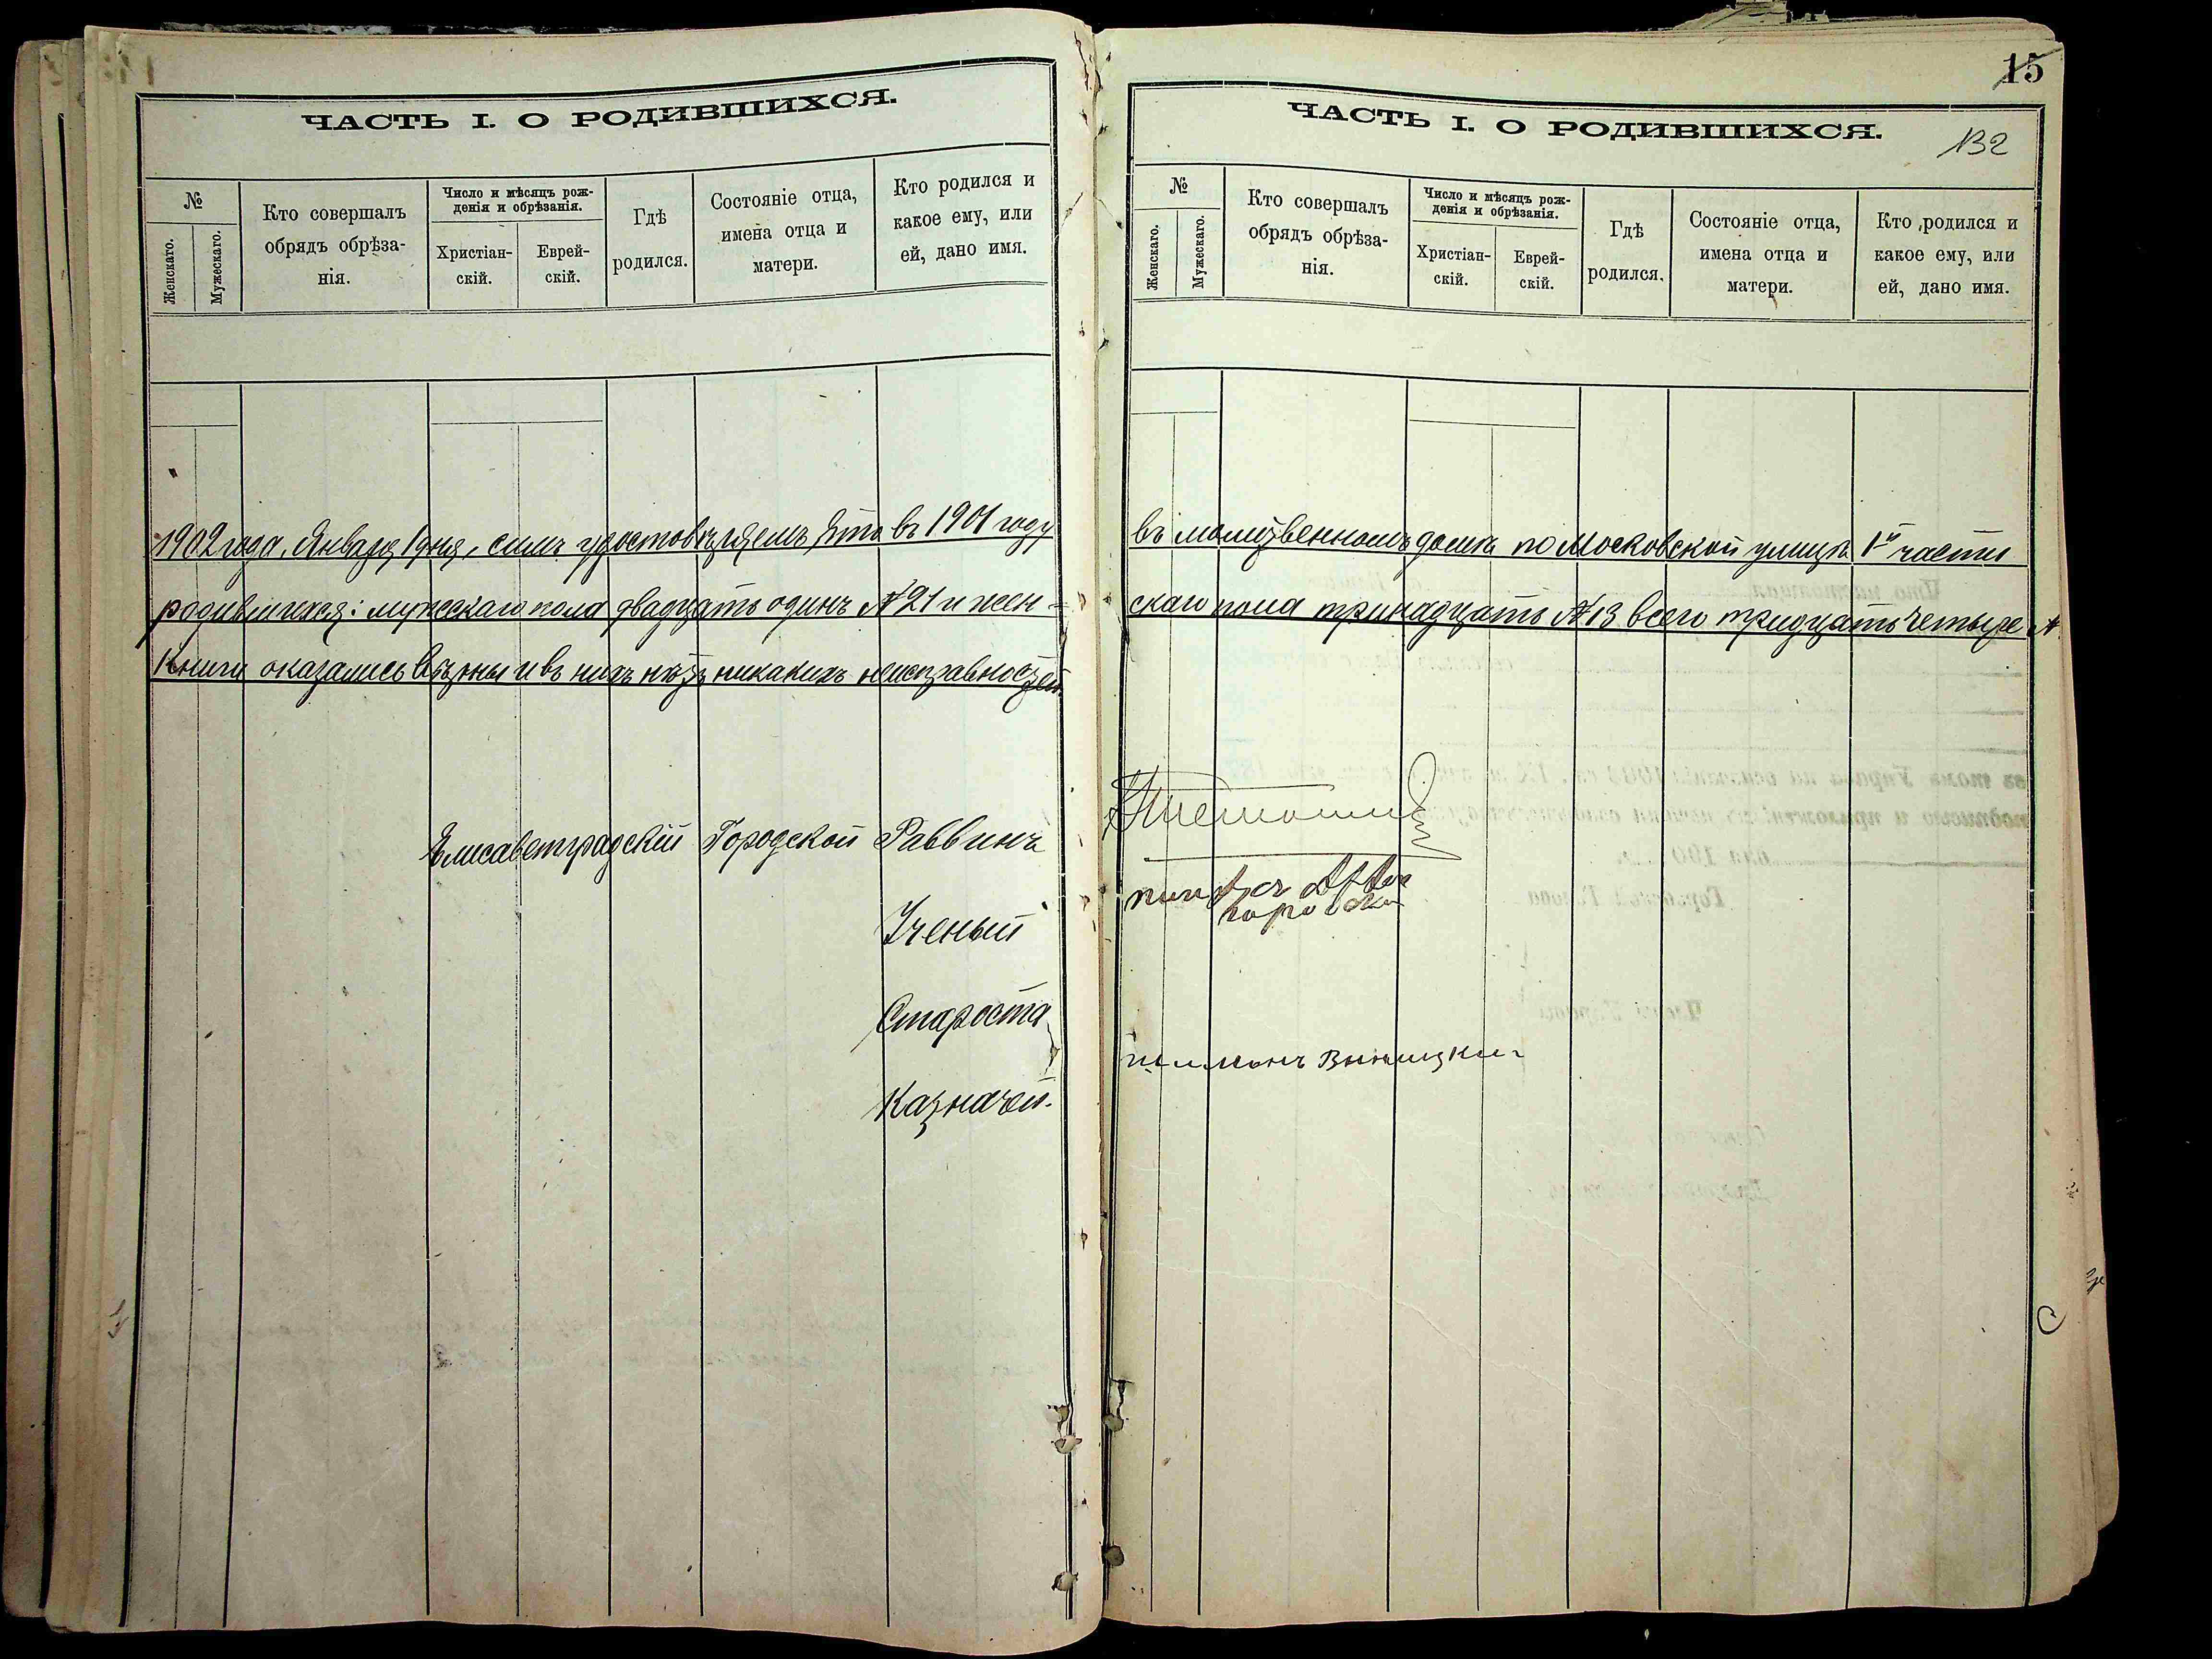 ЧАСТЬ I. О РОДИВШИХСЯ.
№
Женскаго.
Мужескаго.
Кто совершалъ
обрядъ обрѣза-
нія.
Число и мѣсяцъ рож-
денія и обрѣзанія.
Христіан-
скій.
Еврей-
скій.
Гдѣ
родился.
Состояніе отца,
имена отца и
матери.
Кто родился и
какое ему, или
ей, дано имя.
1902 года, Января 1 дня, симъ удостовѣряемъ что въ 1901 году
родившихся: мужескаго пола двадцать одинъ № 21 и жен-
книги оказались вѣрны и въ нихъ нѣтъ никакихъ неисправностей.
Елисаветградскій Городской Раввинъ
Ученый
Староста
Казначей.
15
132
ЧАСТЬ I. О РОДИВШИХСЯ.
№
Женскаго.
Мужескаго.
Кто совершалъ
обрядъ обрѣза-
нія.
Число и мѣсяцъ рож-
денія и обрѣзанія.
Христіан-
скій.
Еврей-
скій.
Гдѣ
родился.
Состояніе отца,
имена отца и
матери.
Кто родился и
какое ему, или
ей, дано имя.
въ молитвенномъ домѣ по Московской улицѣ 1й части
скаго пола тринадцать № 13 всего тридцать четыре №
Винницки